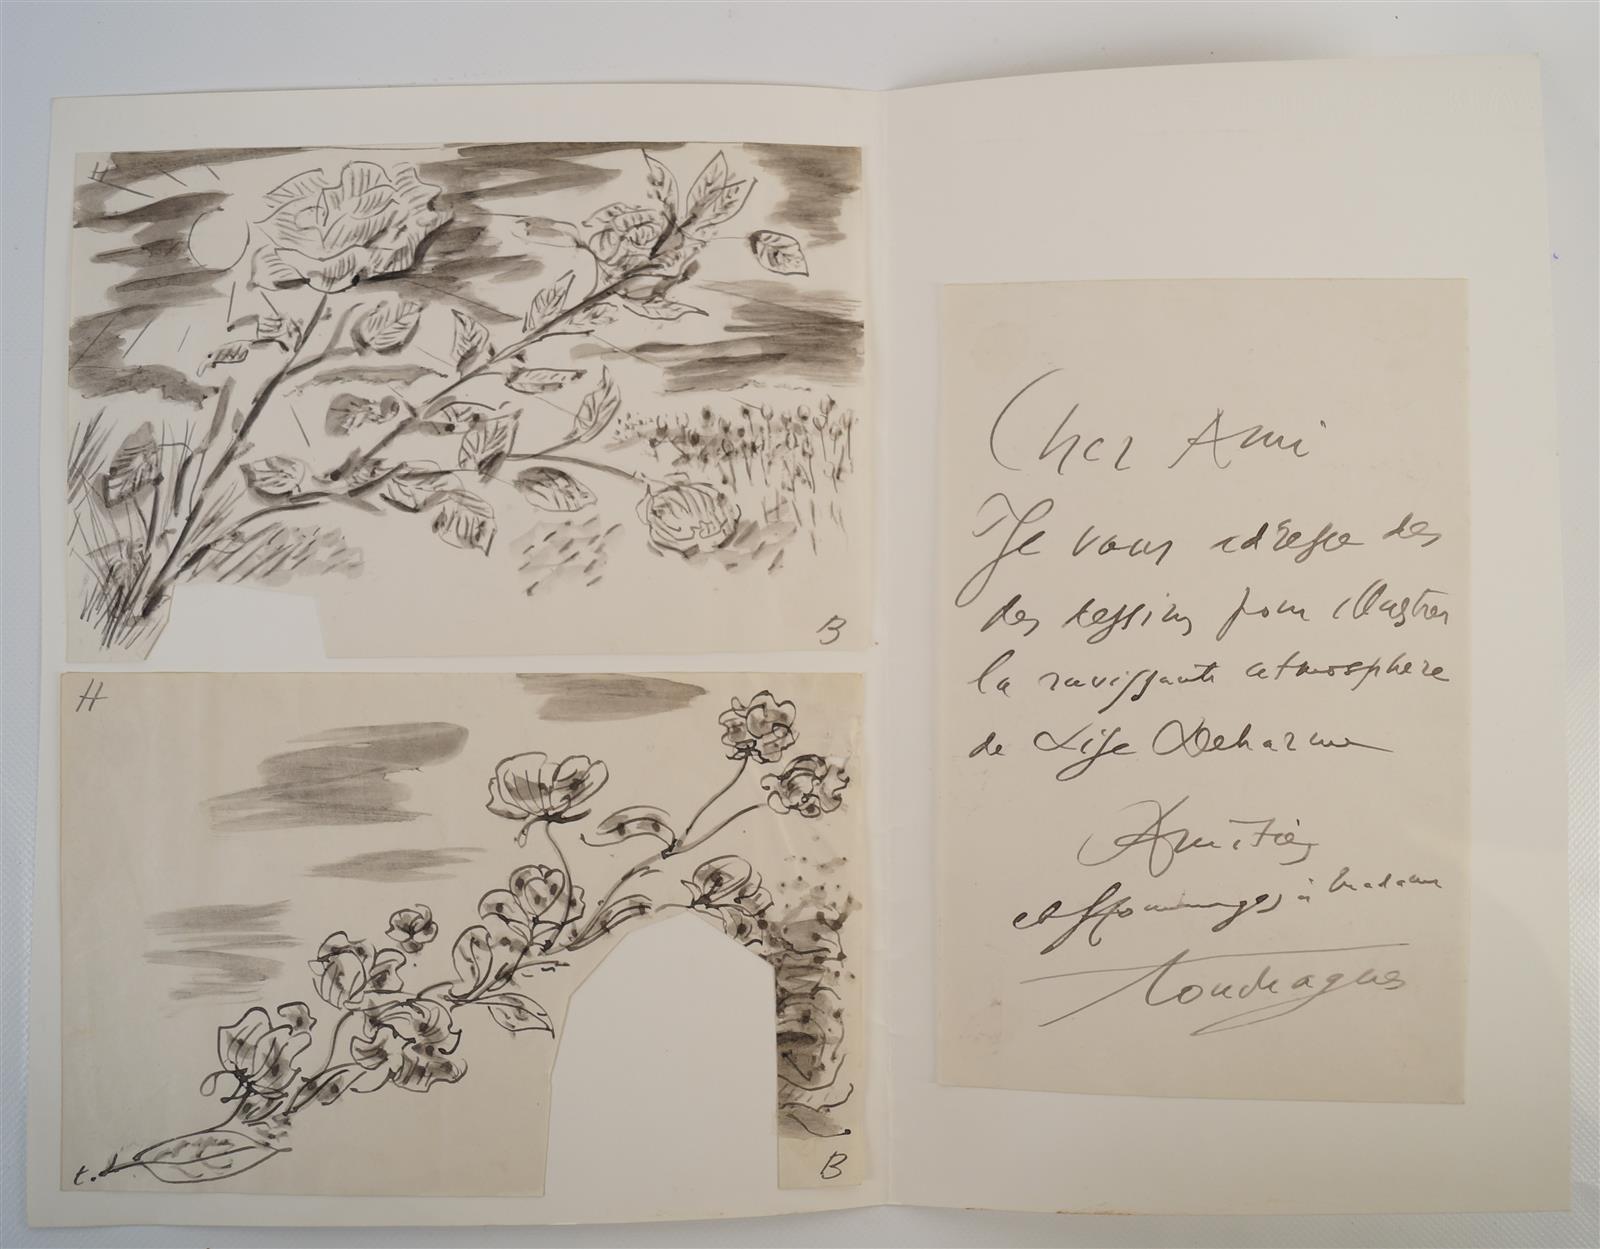 H
B
H
t.
B
Cher Ami
Je vous adresse des
des dessins pour illustrer
la ravissante atmosphère
de Lise Deharme
Amitiés
et Hommages à Madame
Touchagues